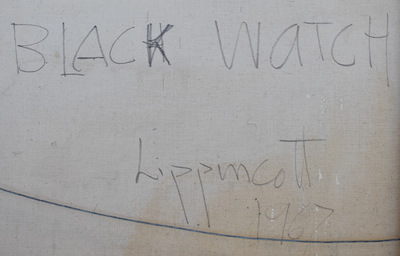 BLACK WATCH
Lippincott
1967